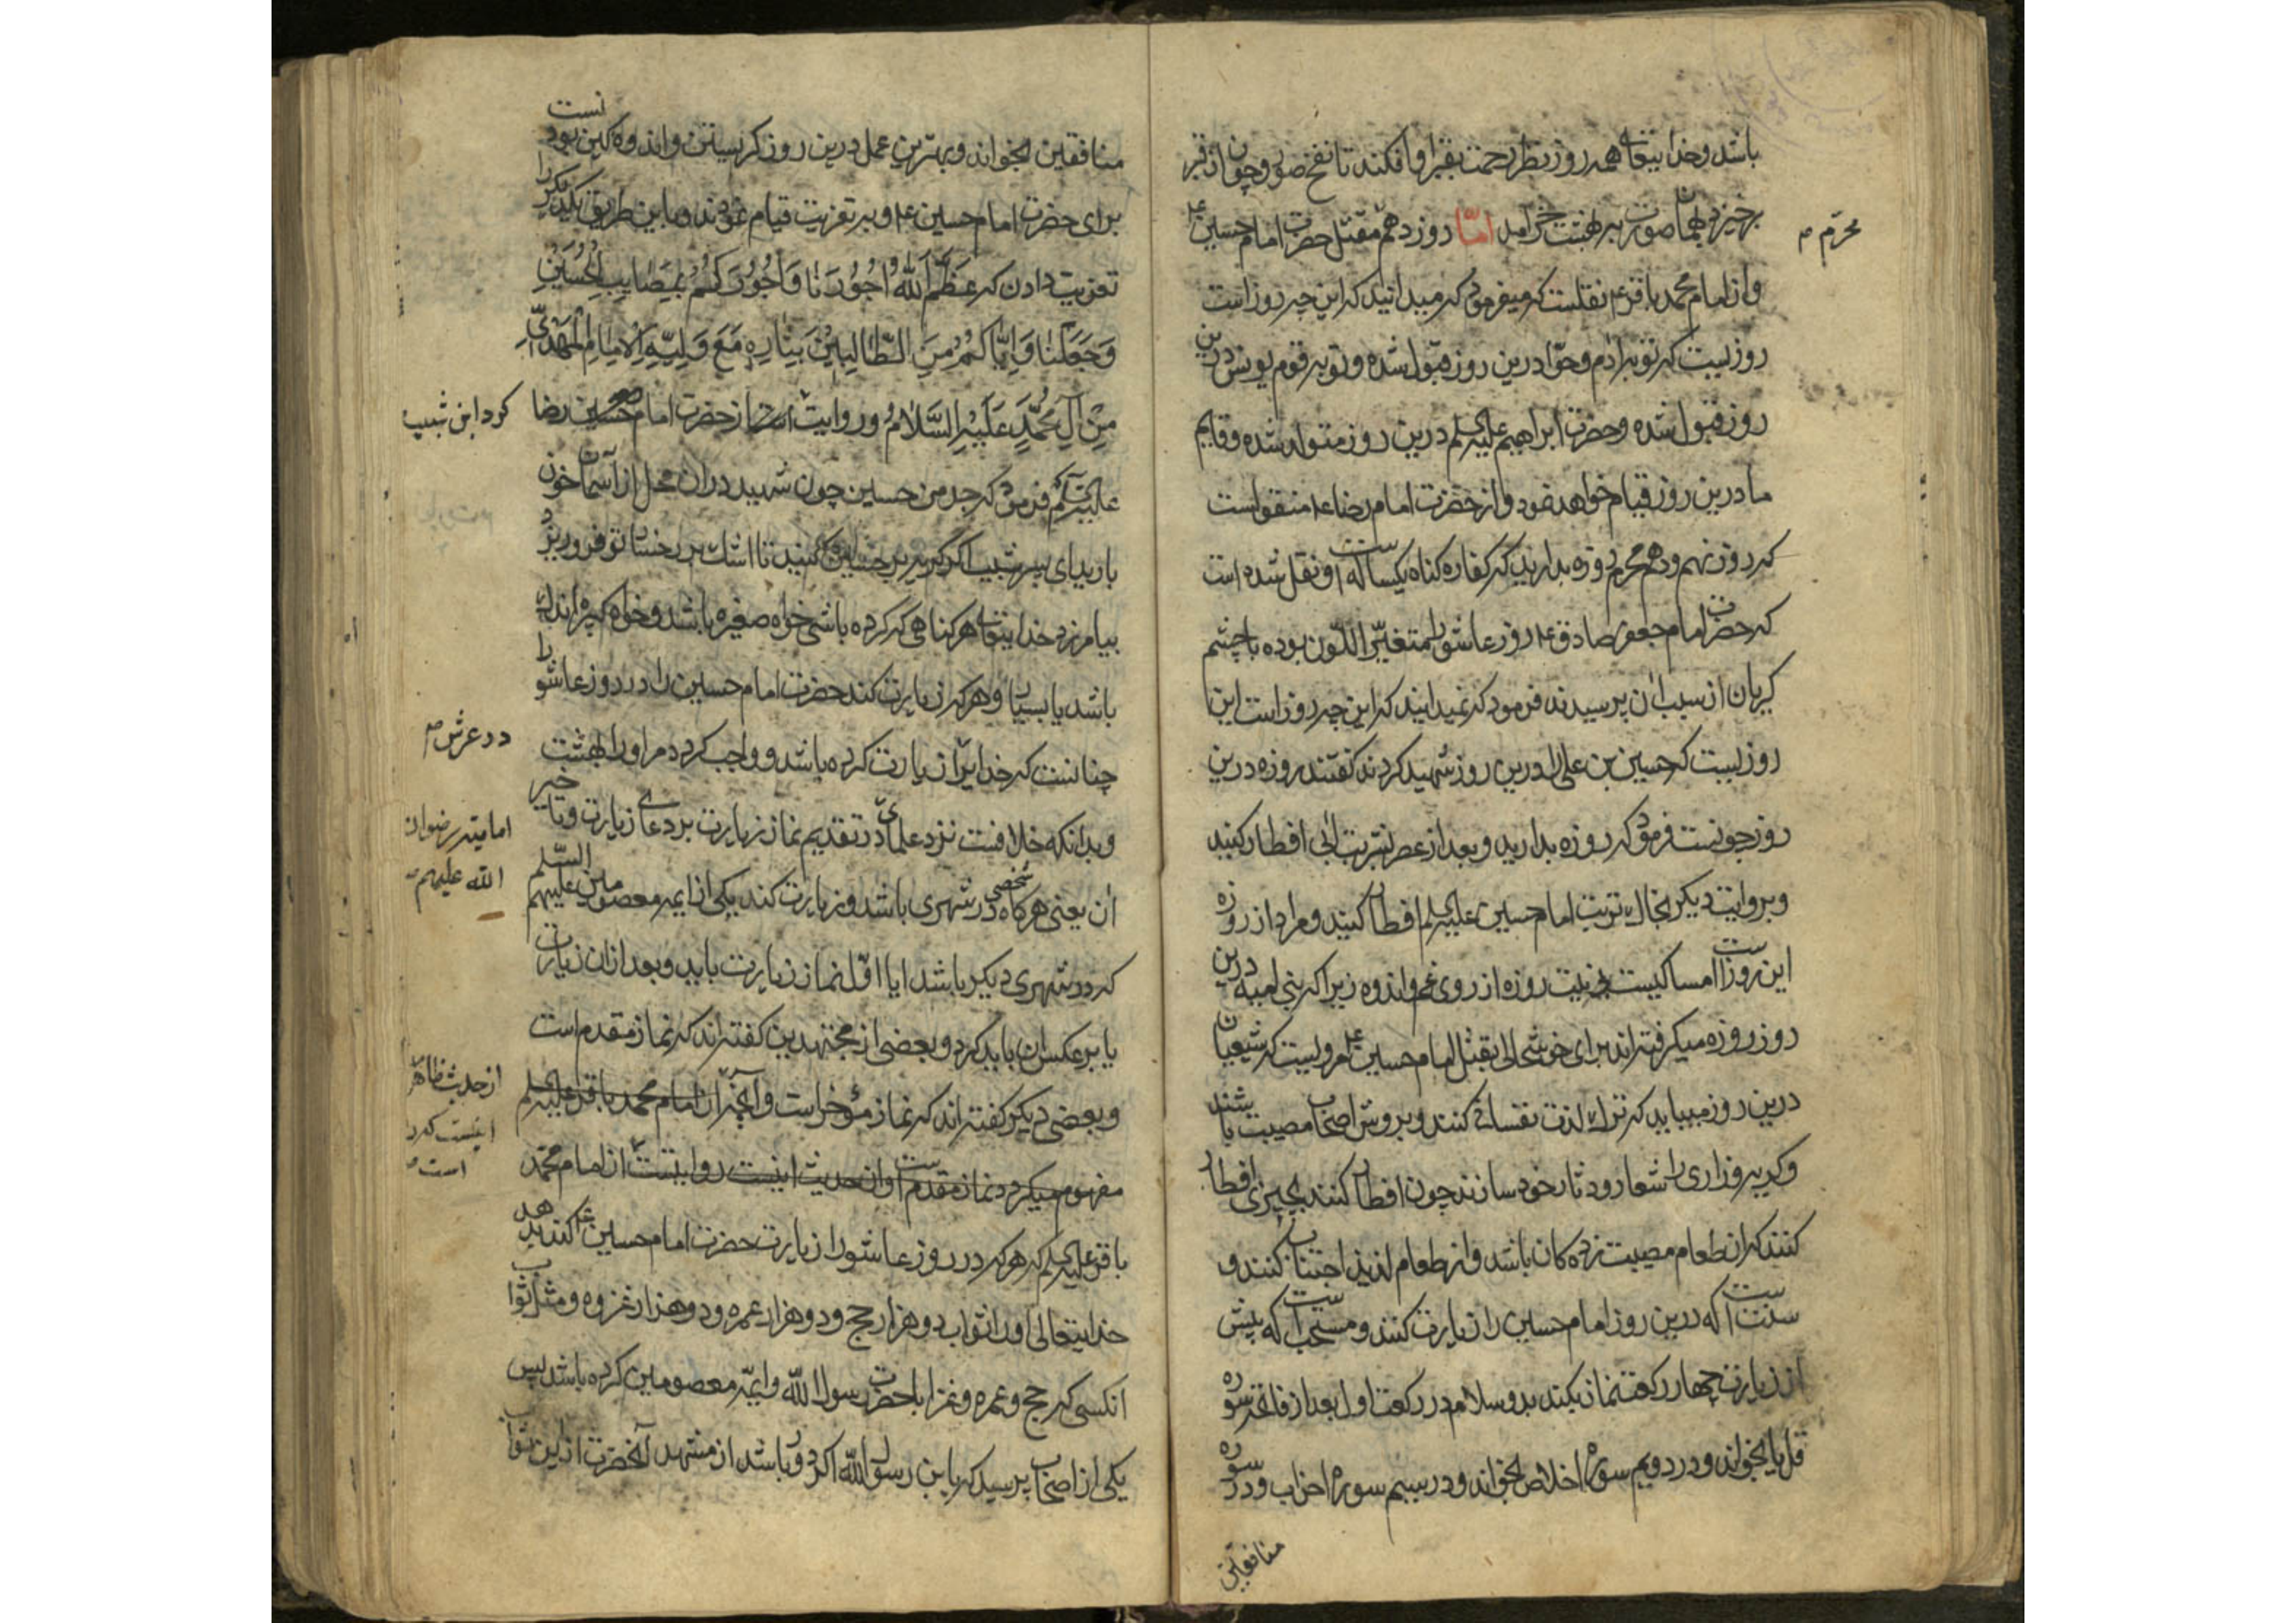 باشد و خدایتعالی همه روز نظر رحمت بقبر او افکند تا نفخ صور و چون از قبر
برخیزد بهمان صورت به بهشت خرامد اما روز دهم مقتل حضرت امام حسین ع
محرم
و از امام محمد باقر ع نقلست که میفرمود که میدانید که این چه روز است
روزیست که توبه آدم و حوا درین روز قبول شده و توبه قوم یونس درین
روز قبول شده و حضرت ابراهیم علیه السلم درین روز متولد شده و قایم
ما درین روز قیام خواهد نمود و از حضرت امام رضا ع منقولست
که روز نهم و دهم محرم روزه بدارید که کفاره گناه یکساله است و نقل شده است
که حضرت امام جعفر صادق ع روز عاشورا متغیر اللون بوده با چشم
گریان از سبب آن پرسیدند فرمود که نمیدانید که این چه روز است این
روزیست که حسین بن علی را درین روز شهید کردند گفتند روزه درین
روز چونست فرمود که روزه بدارید و بعد از عصر بشربت آبی افطار کنید
و بروایت دیگر بخاک تربت امام حسین علیه السلم افطار کنید و مراد از روزه
این روز امساکیست بی نیت روزه از روی غم و اندوه زیرا که بنی امیه درین
روز روزه میگرفته اند برای خوشحالی بقتل امام حسین ع مرویست که شیعیان
درین روز میباید که ترک لذت نفسانی کنند و بروش اصحاب مصیبت باشند
و گریه و زاری را شعار و دثار خود سازند چون افطار کنند بچیزی افطار
کنند که آن طعام مصیبت زده کان باشد و از طعام لذیذ اجتناب کنند و
سنت است که درین روز امام حسین را زیارت کنند و مستحب است که پیش
از زیارت چهار رکعت نماز بکند بدو سلام در رکعت اول بعد از فاتحه سوره
قل یا بخواند و در دویم سوره اخلاص بخواند و در سیم سوره احزاب و در سوره
منافقین
منافقین بخواند و بهترین عمل درین روز گریستن و اندوه گین بودنست
برای حضرت امام حسین ع و به تعزیت قیام نمودند و باین طریق یکدیگر را
تعزیت دادن که عَظَّمَ اللهُ اُجُورَنَا وَ اُجُورَکُمْ بِمَصَایِبِ الْحُسَیْنِ
وَجَعَلَنَا وَاِیَّاکُمْ مِنَ الطَّالِبِیْنَ بِثَارِهِ مَعَ وَلِیِّهِ الْاِمَامِ الْمَهْدِیِّ
مِنْ آلِ مُحَمَّدٍ عَلَیْهِ السَّلَامُ و روایت است از حضرت امام حسین رضا
کرد ابن شبیب
علیه السلم فرمود که جد من حسین چون شهید در آن محل از آسمان خون
بارید ای پسر شبیب اگر گریه بر حسین کنید تا اشک بر رخسار تو فرو ریزد
بیامرزد خدایتعالی هر گناهی که کرده باشی خواه صغیره باشد و خواه کبیره اندک
باشد یا بسیار و هر که زیارت کند حضرت امام حسین را در روز عاشورا
در عرش
چنانست که خدایرا زیارت کرده باشد و واجب کردد مر او را بهشت
و بدانکه خلافست نزد علمای در تقدیم نماز زیارت بر دعای زیارت و تاخیر
امامیه رضوان
الله علیهم
آن یعنی هرگاه شخصی در شهری باشد و زیارت کند یکی از ایمه معصومین علیهم السلم
که در شهری دیگر باشد ایا اول نماز زیارت باید و بعد از آن زیارت
یا بر عکس آن باید کرد و بعضی از مجتهدین گفته اند که نماز مقدم است
و بعضی دیگر گفته اند که نماز مؤخر است و آنچه از امام محمد باقر علیه السلم
از حدیث ظاهر
مفهوم میگردد نماز مقدم است و آن حدیث اینست روایتست از امام محمد
اینست که
است
باقر علیه السلم که هر که در روز عاشورا زیارت حضرت امام حسین ع کند بدهد
خدایتعالی او را ثواب دو هزار حج و دو هزار عمره و دو هزار غزوه و مثل ثواب
انکسی که حج و عمره و غزا با حضرت رسول الله و ایمه معصومین کرده باشد پس
یکی از اصحاب پرسید که یا بن رسول الله اگر دور باشد از مشهد آنحضرت از این ثواب